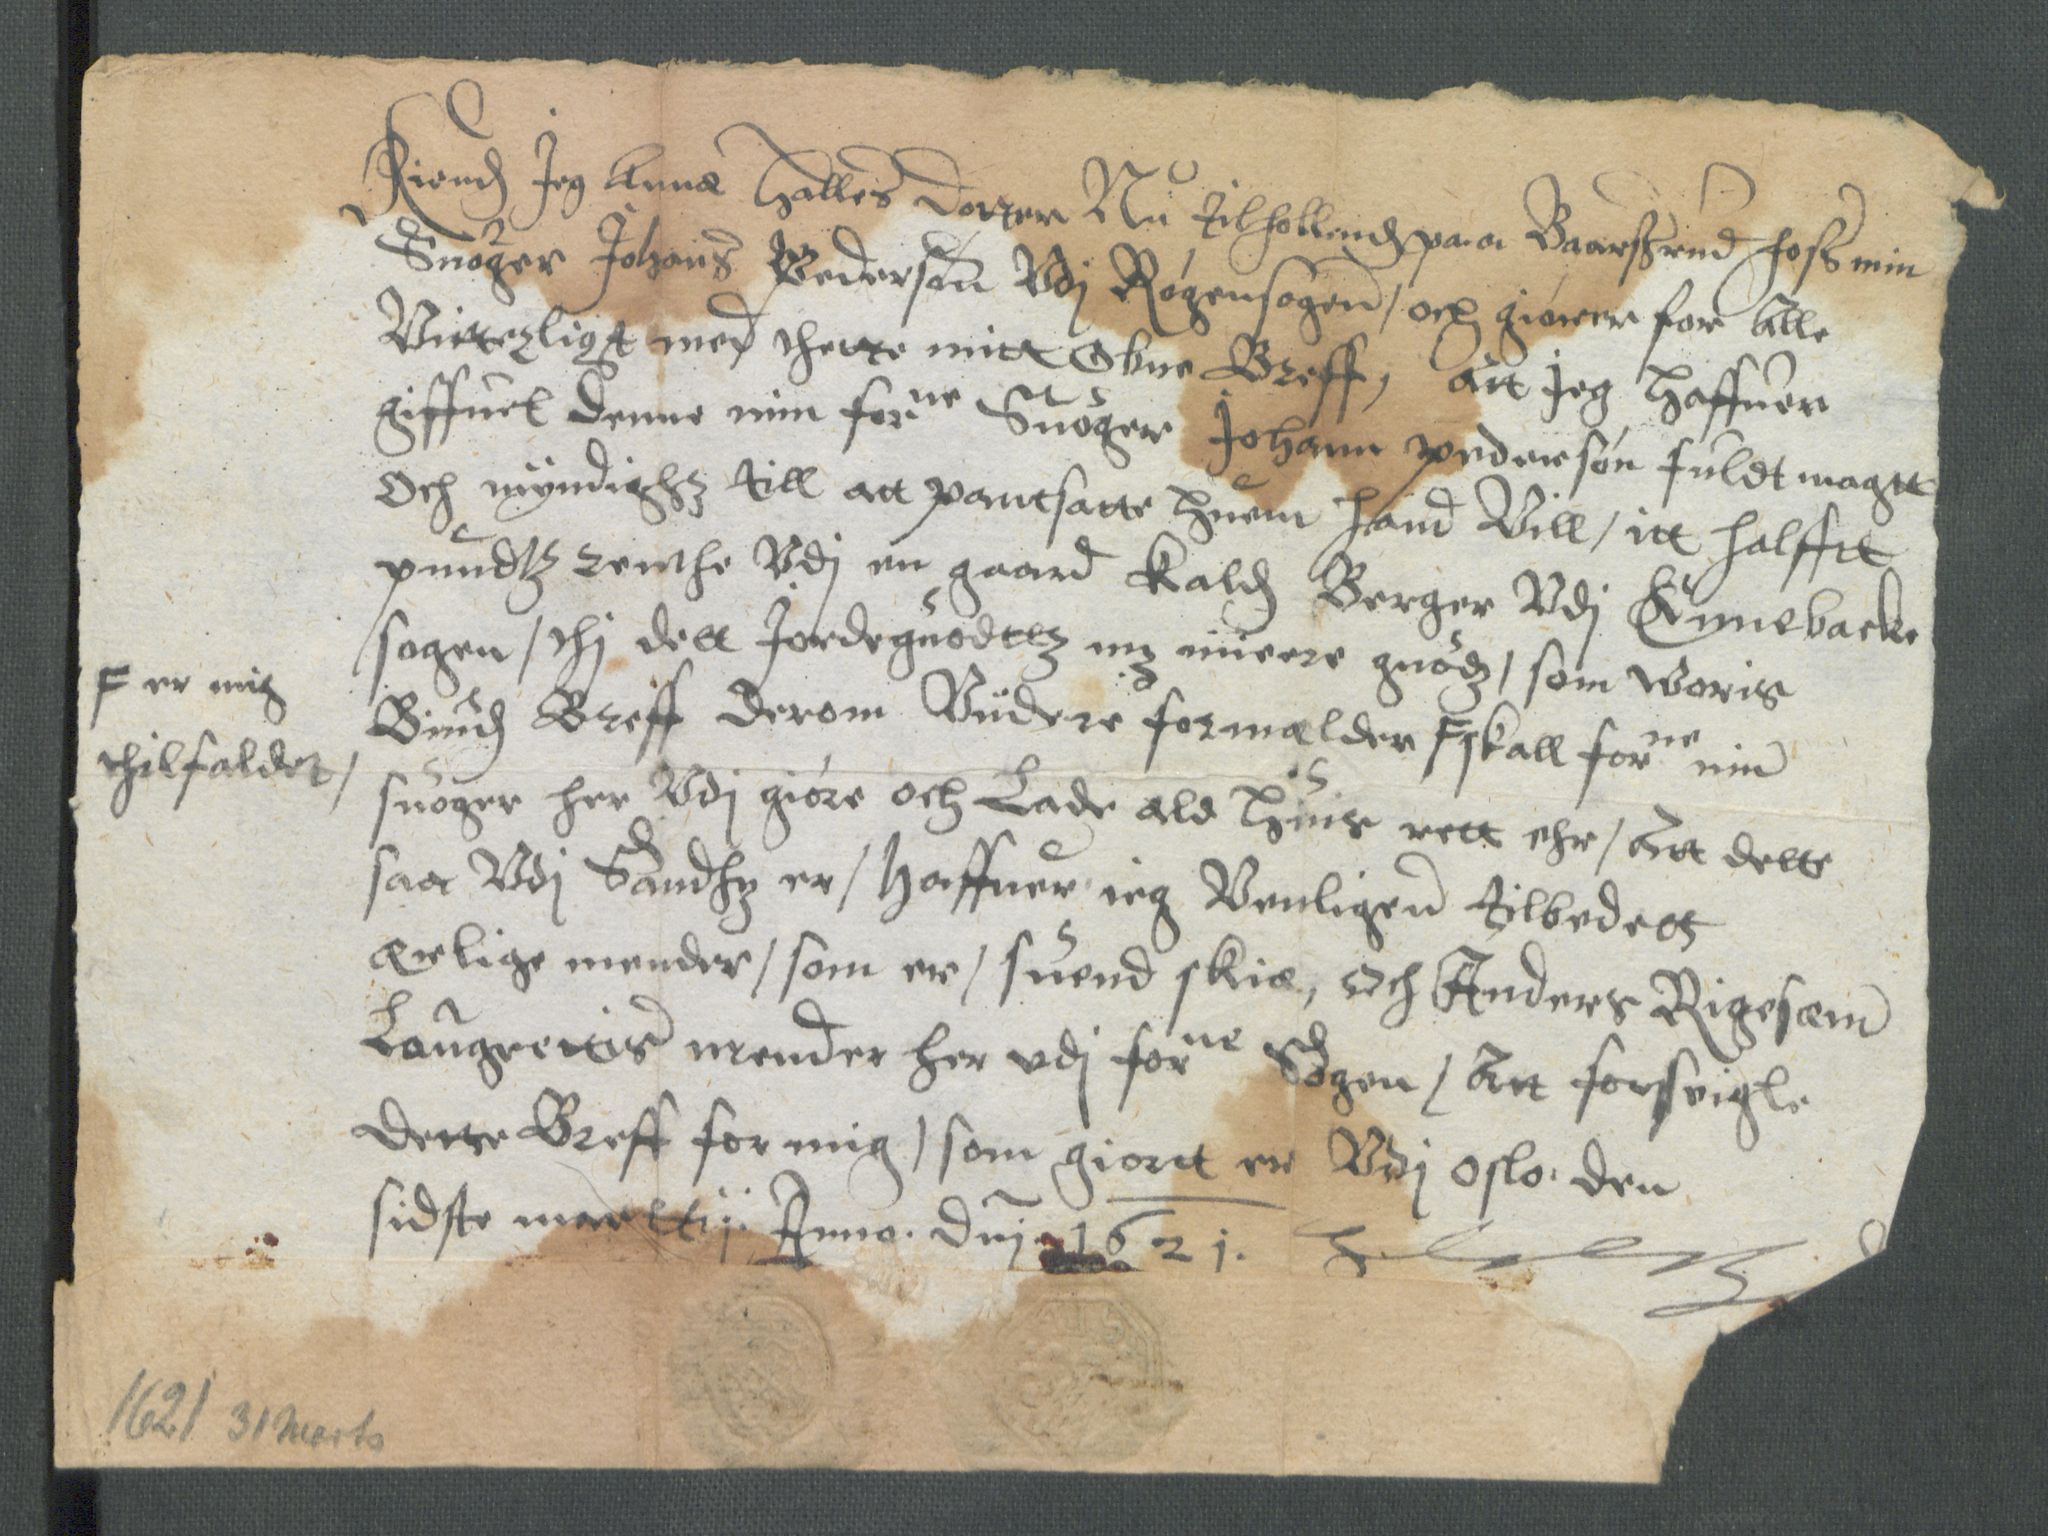 Kiends Jeg Anna Halles Dotter Nu tilhollends paa Baarssrud hoss min
Suoger Johans Pedersøn Udj Rógensógen / och giórer for Alle
Vitterligt med thette mitt Obne Breff, Att Jeg Haffuer
giffuet denne min forne Suoger Johann pedersøn fuldtmagtt
Och myndighz till att pantsatte huem hand Vill / itt halfftt
pundtz renthe Udj en gaard kalds Berger Udj Ennebacke
sogen / thj dett Jordeguodttz mz mere guodz / som woris
Binds Breff derom Viidere formelder F skall forne min
F er mig
thilfaldet /
suoger her Udj gióre och Lade ald huis rett ehr / Att dette
saa Udj Sandhz er / Haffuer ieg Venligen tilbedett
ærlige mender / som er / suend skia, Och Anders Rigesæm
Laugrettis mender her udj forne Sogen / Att forseigle
dette Breff for mig / som giortt er Udj Oslo den
sidste marttij. Anno. dnj. 1621.
1621 31 Marts